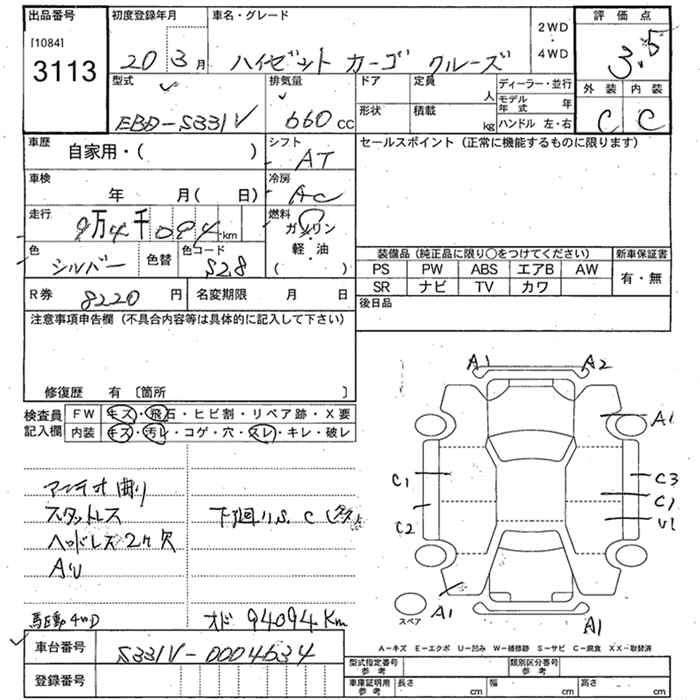 出品番号
[1084]
3113
初度登録年月
20 3月
車名・グレード
ハイゼット カーゴ クルーズ
2WD
・
4WD
評価点
3.5
外装 内装
C C
型式
EBD-S331V
排気量
660 cc
ドア 定員 人
形状 積載 kg
ディーラー・並行
モデル年式 年
ハンドル 左・右
車歴
自家用・( )
シフト
AT
セールスポイント (正常に機能するものに限ります)
車検
年 月( 日)
冷房
AC
走行
9万4千094km
燃料
ガソリン
・
軽・油
( )
色
シルバー
色替
色コード
S28
装備品 (純正品に限り○をつけてください) 新車保証書
PS PW ABS エアB AW 有・無
SR ナビ TV カワ
R券 8220 円 名変期限 月 日
後日品
注意事項申告欄 (不具合内容等は具体的に記入して下さい)
修復歴 有 〔箇所 〕
検査員記入欄
FW キズ・飛石・ヒビ割・リペア跡・X要
内装 キズ・汚レ・コゲ・穴・スレ・キレ・破レ
アンテナ曲り
スタットレス
ヘッドレス2ケ欠
AU
下廻りS.C
駆動4WD
オド 94094Km
車台番号 S331V-0004634
登録番号
A1 A2
A1
C1 C3
C1
C2 U1
A1 A1
スペア
A-キズ E-エクボ U-凹み W-補修跡 S-サビ C-腐食 XX-取替済
型式指定番号 参考 類別区分番号 参考
車庫証明用 参考 長さ cm 幅 cm 高さ cm